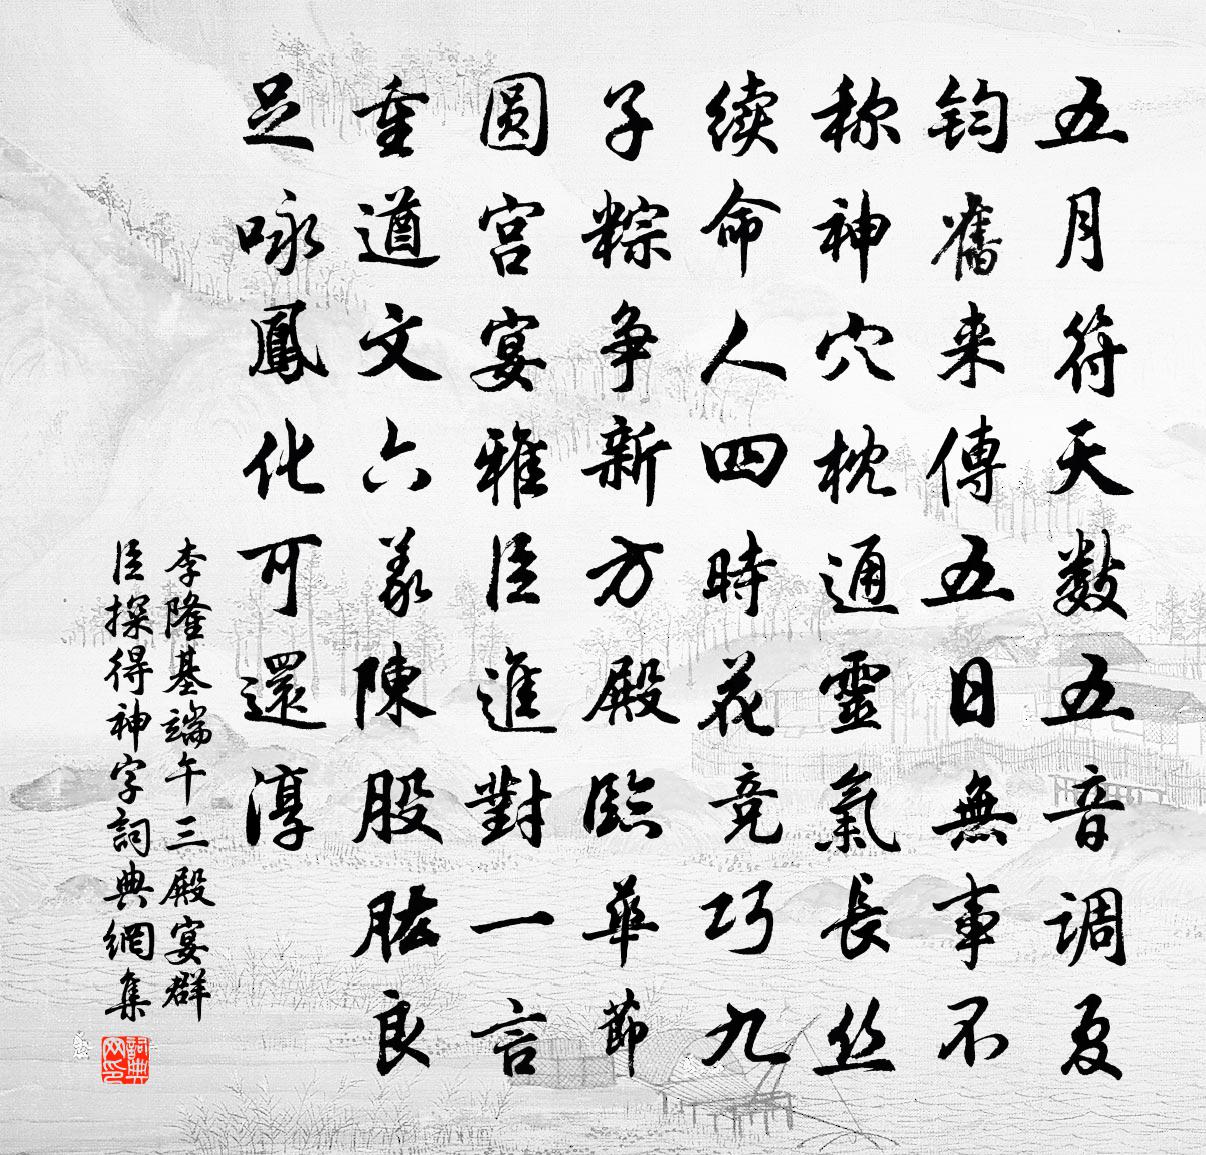 五月符天数五音调夏
钧舊来傳五日無事不
称神穴枕通靈氣長丝
续命人四時花竞巧九
子粽争新方殿臨華節
圆宫宴雅臣進對一言
重遒文六义陳股肱良
足咏鳳化可還淳
李隆基端午三殿宴群
臣探得神字詞典網集